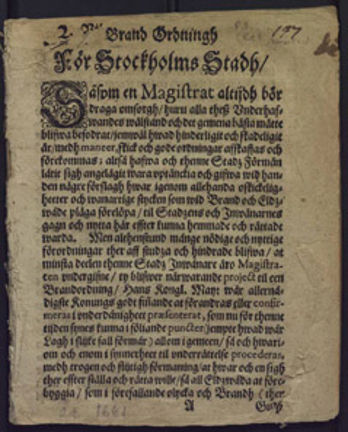 2. N:r
Brand Ordningh
För Stockholms Stadh/
Såsom en Magistrat altijdh bör
draga omsorgh/huru alla theß Underhaf-
wandes wälstand och det gemena bästa måtte
blifwa befodrat/jemwäl hwad hinderligit och skadeligit
är/medh maneer, skick och gode ordningar affskaffas och
förekommas; altså hafwa och thenne Stadz Förmän
låtit sigh angelägit wara uptänckia och gifwa wid han-
den någre förslagh hwar igenom allehanda oskickelig-
heeter och wanartige stycken som wid Brand och Eldz-
wåde pläga förelöpa / til Stadzens och Inwånarnes
gagn och nytta här effter kunna hemmade och rättade
warda. Men althenstund månge nödige och nyttige
förordningar ther aff studza och hindrade blifwa / at
minsta deelen thenne Stadz Inwånare äro Magistra-
ten undergifne / ty blifwer närwarande project til een
Brandordning / Hans Kongl. Mayt wår allernå-
digste Konungs godtfinnande at förandras eller confir-
meras i underdånigheet præsenterat, som nu för thenne
tijden synes kunna i följande puncter (jempte hwad wår
Lagh i slijke fall förmår) allom i gemeen / så och hwari-
om och enom i synnerheet til underrättelse procederas,
medh trogen och flijtigh förmaning / at hwar och en sigh
ther effter ställa och rätta wille / så all Eldzwåda at före-
byggia / som i förefallande olycka och Brandh (ther
A Gudh
1661